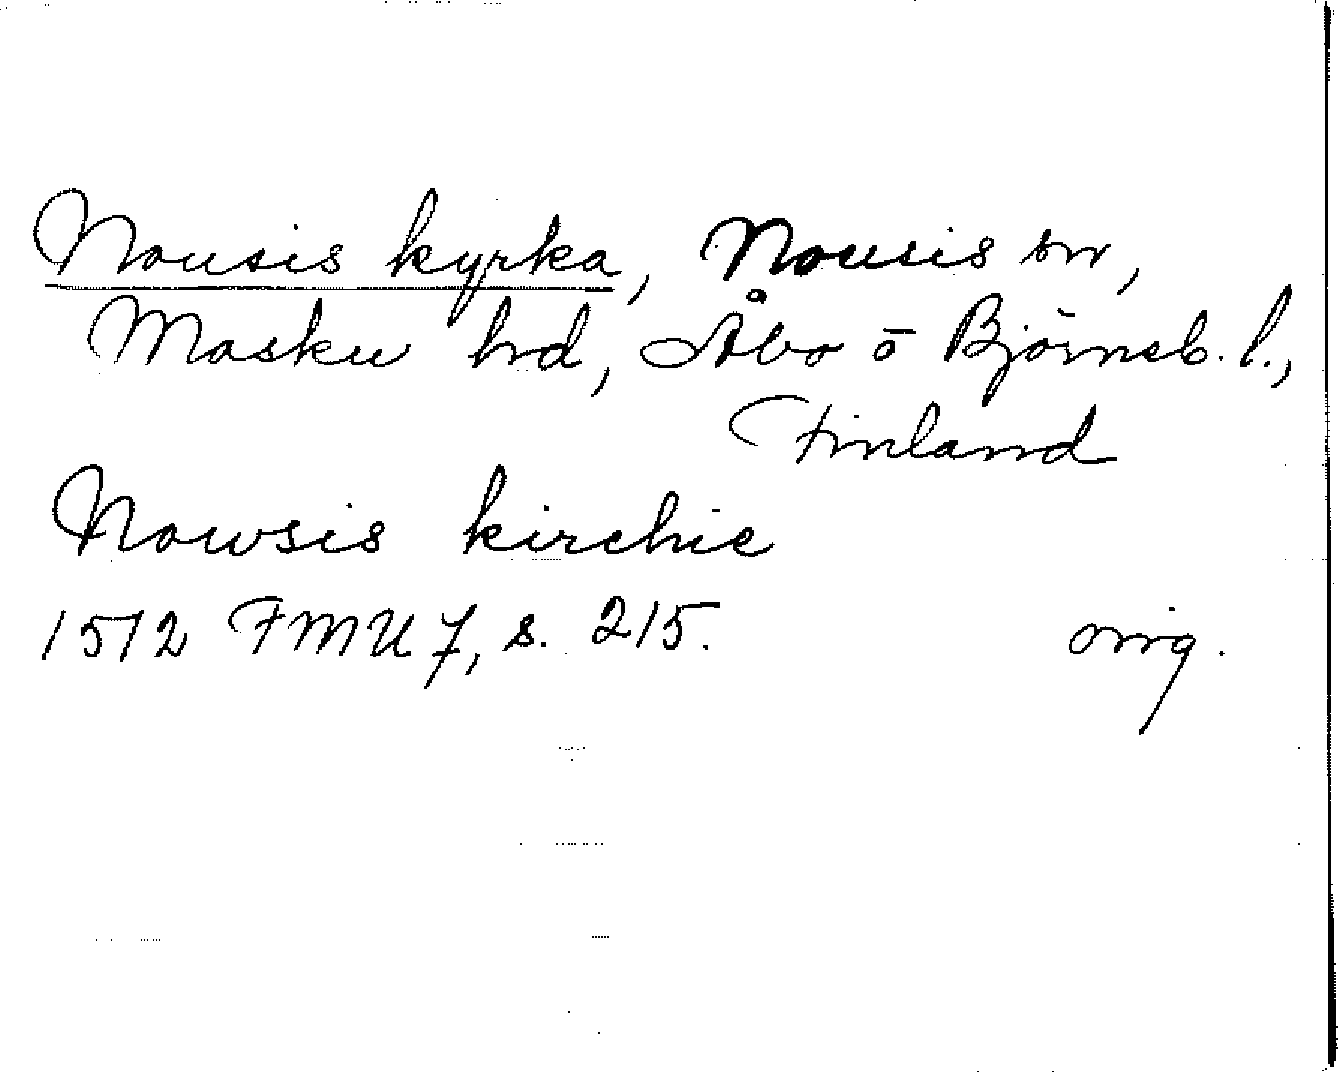 Nousis kyrka, Nousis sn,
Masku hd, Åbo o Björneb. l.,
Finland
Nowsis kirchie
1512 FMU 7, s. 215. orig.